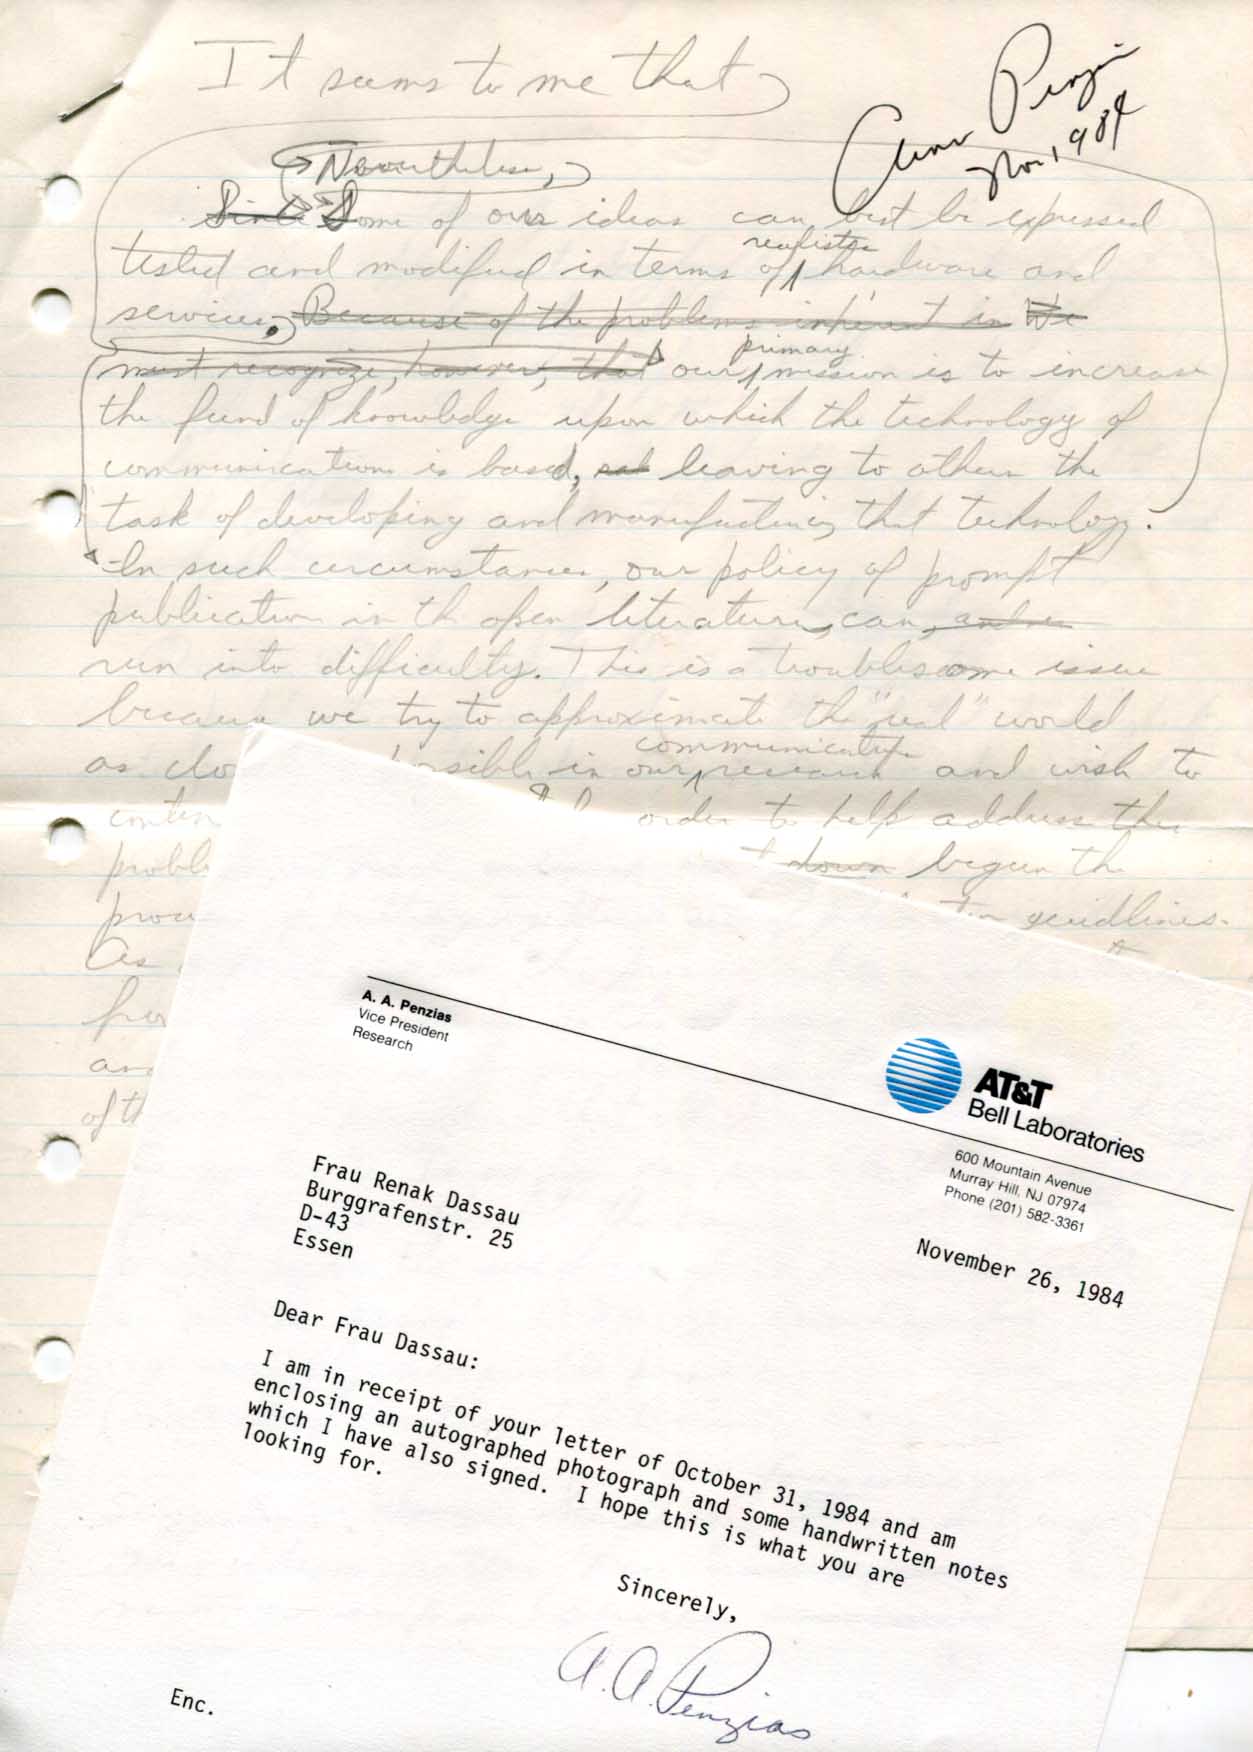 It seems to me that
Arno Penzias
Nov 1984
Nevertheless,
Since Some of our ideas can best be expressed
realistic
tested and modified in terms of hardware and
services, Because of the problems inherent in We
primary
must recognize, however, that our mission is to increase
the fund of knowledge upon which the technology of
communications is based, leaving to others the
task of developing and manufacturing that technology.
In such circumstances, our policy of prompt
publication in th open literature, can
run into difficulty. This is a troublesome issue
because we try to approximate the "real" world
communications
as in our research and wish to
order to help address this
down begun the
guidlines.
As
of th
A. A. Penzias
Vice President
Research
AT&T
Bell Laboratories
600 Mountain Avenue
Murray Hill, NJ 07974
Phone (201) 582-3361
November 26, 1984
Frau Renak Dassau
Burggrafenstr. 25
D-43
Essen
Dear Frau Dassau:
I am in receipt of your letter of October 31, 1984 and am
enclosing an autographed photograph and some handwritten notes
which I have also signed. I hope this is what you are
looking for.
Sincerely,
A. A. Penzias
Enc.